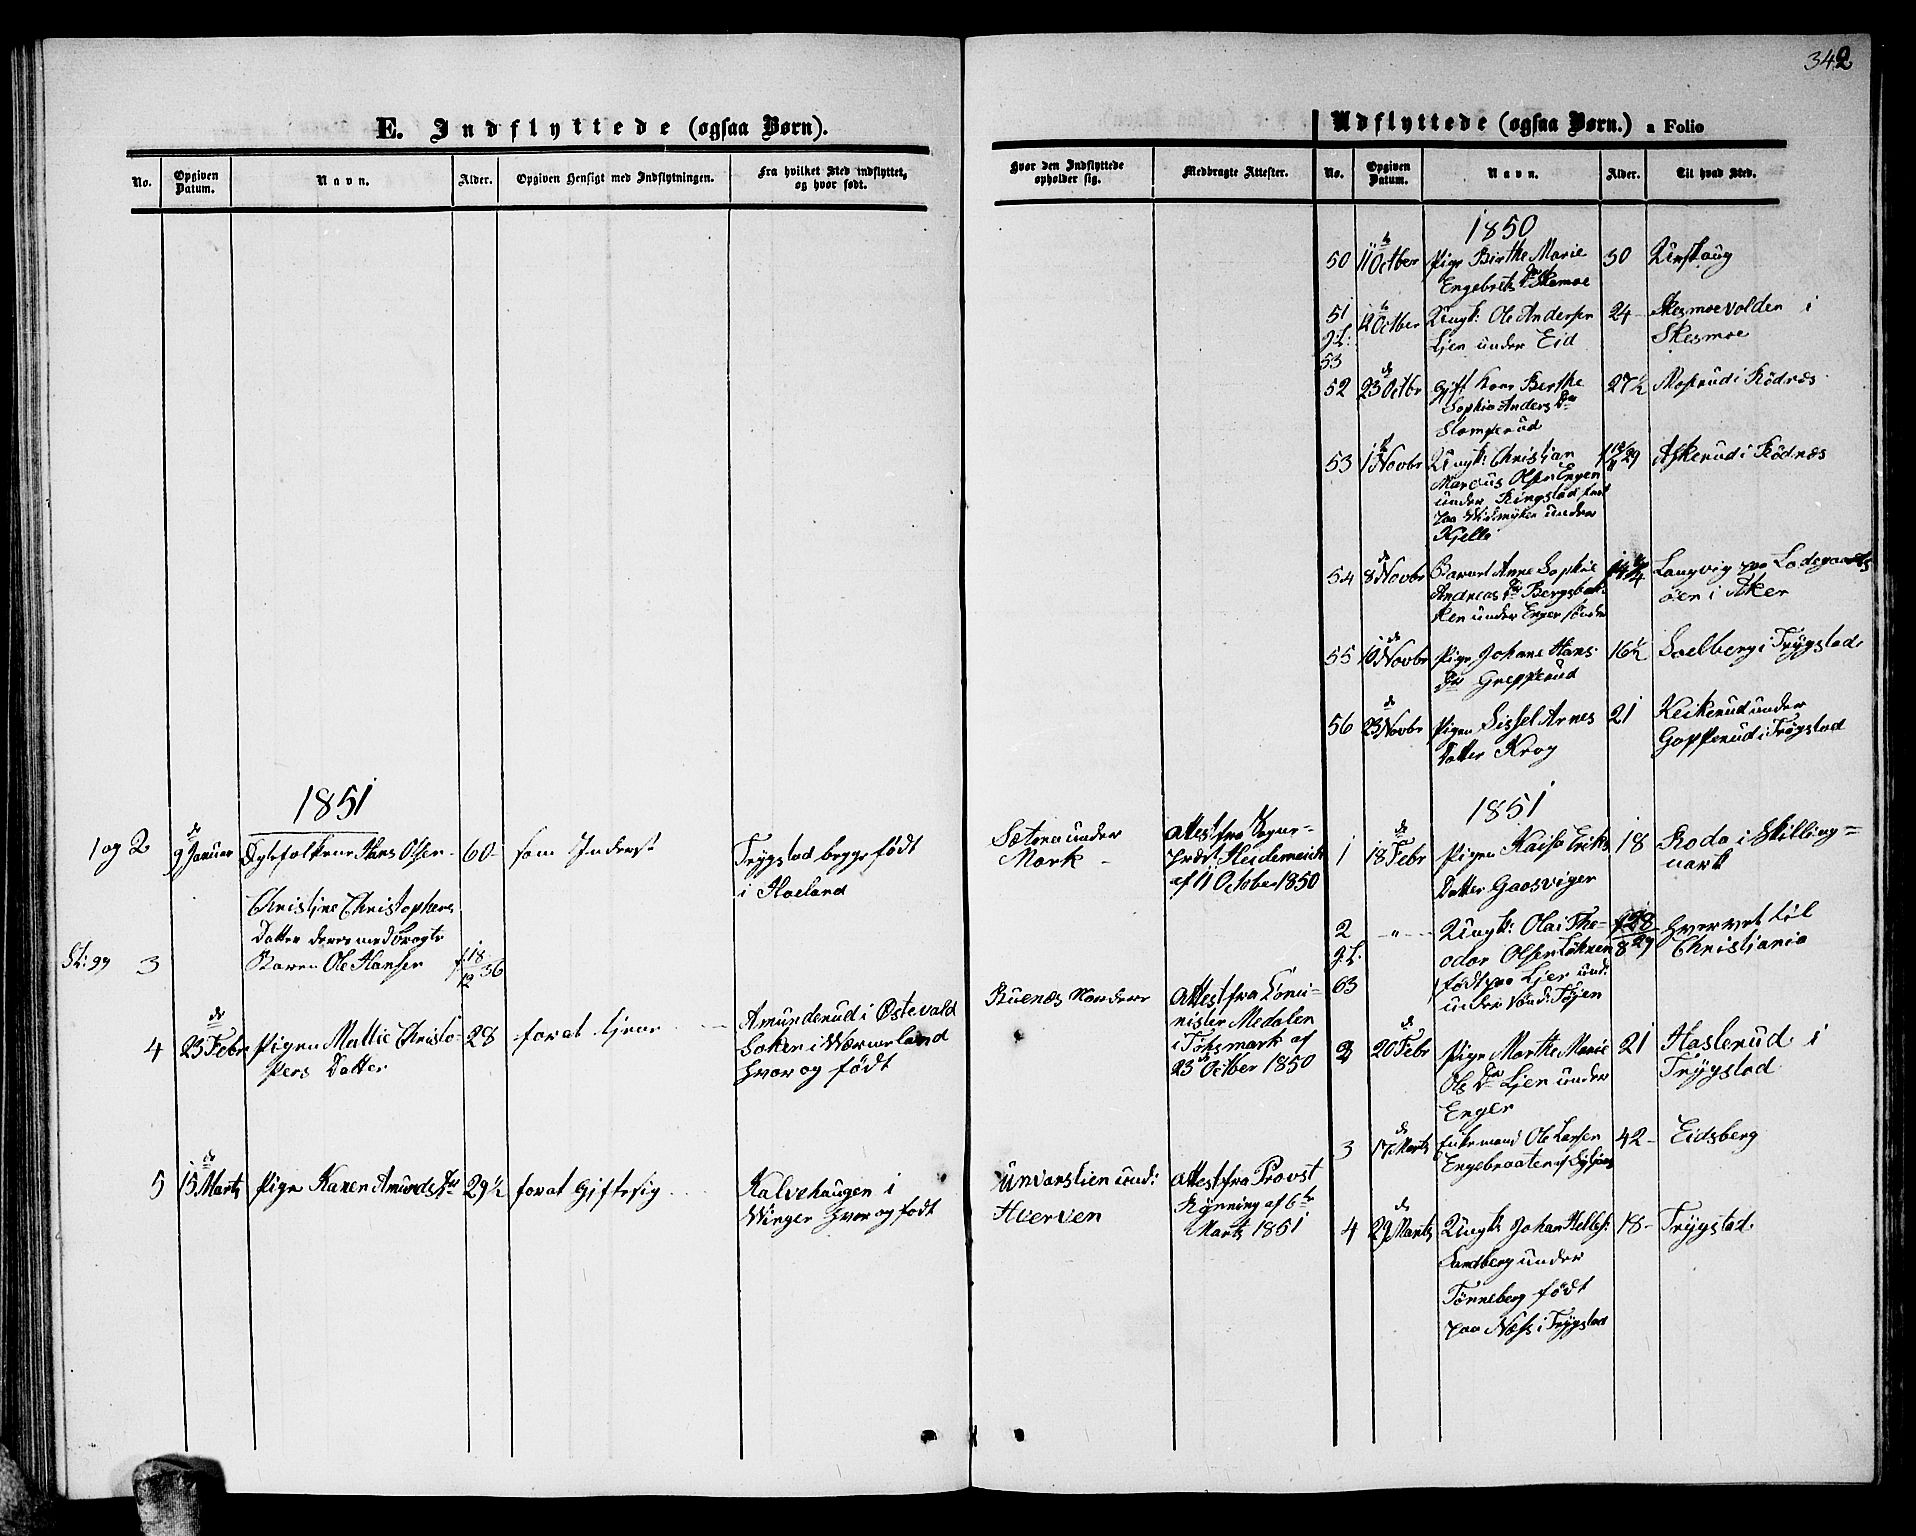 342
E. Indflyttede (ogsaa Børn).
No.
Opgiven Datum.
Navn.
Alder.
Opgiven Hensigt med Indflytningen.
Fra hvilket Sted indflyttet, og hvor født.
Hvor den Indflyttede opholder sig.
Medbragte Attester.
1851
1 og 2
9 de Januar
Hans Olsen
60
som Inderst
Trygstad begge født
i Høeland
Sætra under
Mork
Attest fra
Heidemark
af 11 October 1850
Christine Christophers
Datter deres medbragte
3
Barn Ole Hansen
f 18/12 36
4
23 de Febr
Pigen Mattie Christo-
pers Datter
28
for at tjene
Amunderud i Østevald
Soken i Wærmeland
hvor og født
Ruenæs Nordere
Attest fra Comi-
nister Medalen
i Tøksmark af
23 October 1850
5
15 de Marts
Pige Karen Amunds Dtr
29 ½
for at Gifte sig
Kalvehaugen i
Winger hvor og født
und:
Hverven
Attest fra Provst
Rynning af 6te
Marts 1851
Udflyttede (ogsaa Børn.) a Folio
No.
Opgiven Datum.
Navn.
Alder.
Til hvad Sted.
1850
50
11 October
Pige Birthe Marie
Engebrets Dtr Skamoe
30
Urskaug
51
12 October
Ungk: Ole Andersen
Ljen under Eid
24
Skesmoevolden i
Skesmoe
53
52
23 de Octbr
Gift Kone Berthe
Sophie Anders Dtr
Slomperud
27 ½
i Rødnæs
53
1 Novbr
Ungk: Christian
Marcus Olsen Engen
under Ringstad født
paa under
Kjelle
Askerud i Rødnæs
54
8 de Novbr
Barnet Anne Sophie
Andreas Dtr Bergsbak-
ken under Enger søndre
Langvig paa Ladegaards
øen i Aker
55
10 de Novbr
Pige Johane Hans
Dtr Grepperud
16 ½
Soelberg i Trygstad
56
23 de Novbr
Pigen Sissel Arnes
Datter Krog
21
under
Gopperud i Trygstad
1851
1
18 de Febr
Pigen Kaisa Eriks
Datter Gaasviger
18
Roda i Skilling-
mark
2
- " -
Ungk: Olai The-
odor Olsen
født paa Ljer und:
63
Hvervet til
Christiania
3
20 de Febr
Pige Marthe Marie
Ols Dtr Ljen under
Enger
21
Haslerud i
Trygstad
3
17 de Marts
Ole Larsen
Engebraaten
42
Eidsberg
4
29 de Marts
Ungk: Johan
Sandberg under
Tønneberg født
paa Næss i Trygstad
18
Trygstad